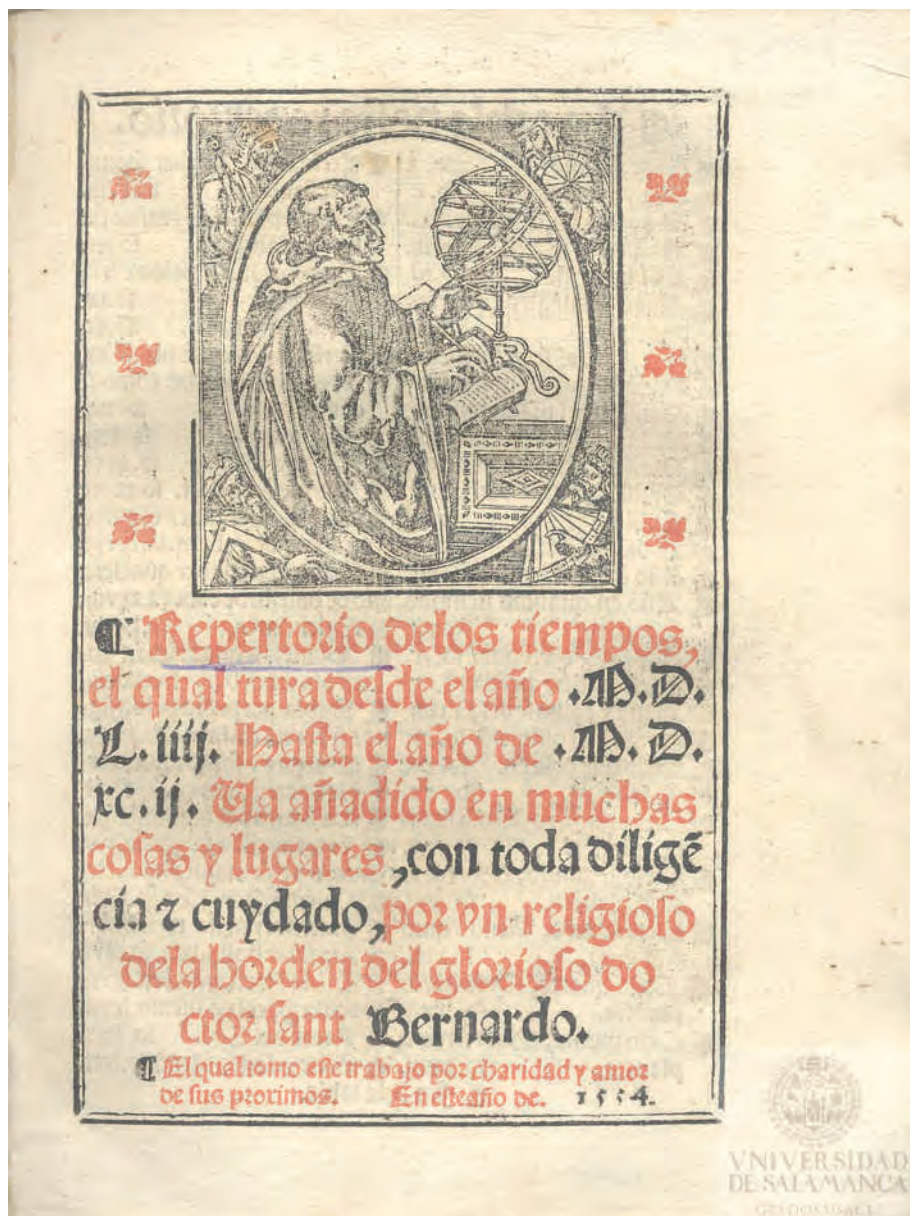 ¶ Repertorio delos tiempos,
el qual tura desde el año .M.D.
L.iiij. Hasta el año de .M.D.
xc.ij. Va añadido en muchas
cosas y lugares, con toda diligẽ
cia ⁊ cuydado, por vn religioso
dela horden del glorioso do
ctor sant Bernardo.
¶ El qual tomo este trabajo por charidad y amor
de sus proximos. En este año de. 1554.
VNIVERSIDAD
DE SALAMANCA